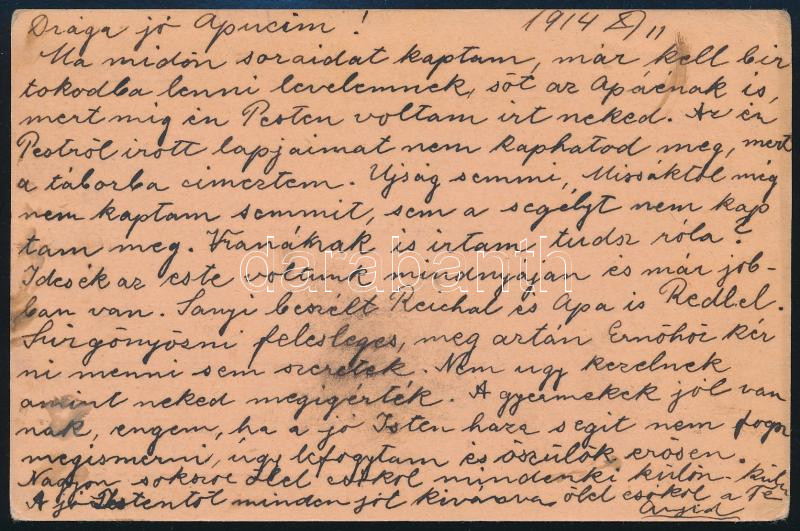 Drága jó Apucim! 1914 X/11
Ma midőn soraidat kaptam, már kell bir
tokodba lenni levelemnek, sőt az Apáénak is,
mert mig én Pesten voltam irt neked. Az én
Pestről irott lapjaimat nem kaphatod meg, mert
a táborba cimeztem. Ujság semmi, Missáktól még
nem kaptam semmit, sem a segélyt nem kap
tam meg. Vranáknak is irtam, tudsz róla?
Idesék az este voltunk mindnyájan és már job-
ban van. Sanyi beszélt Reichal és Apa is Redlel.
Sürgönyözni felesleges, meg aztán Ernőhöz kér
ni menni sem szeretek. Nem ugy kezelnek
amint neked megigérték. A gyermekek jól van
nak, engem, ha a jó Isten haza segit nem fogsz
megismerni, úgy lefogytam és őszülök erősen.
Nagyon sokszor ölel csókol mindenki külön-kül
A jó Istentől minden jót kivánva öleld csókol a Te
darabanth